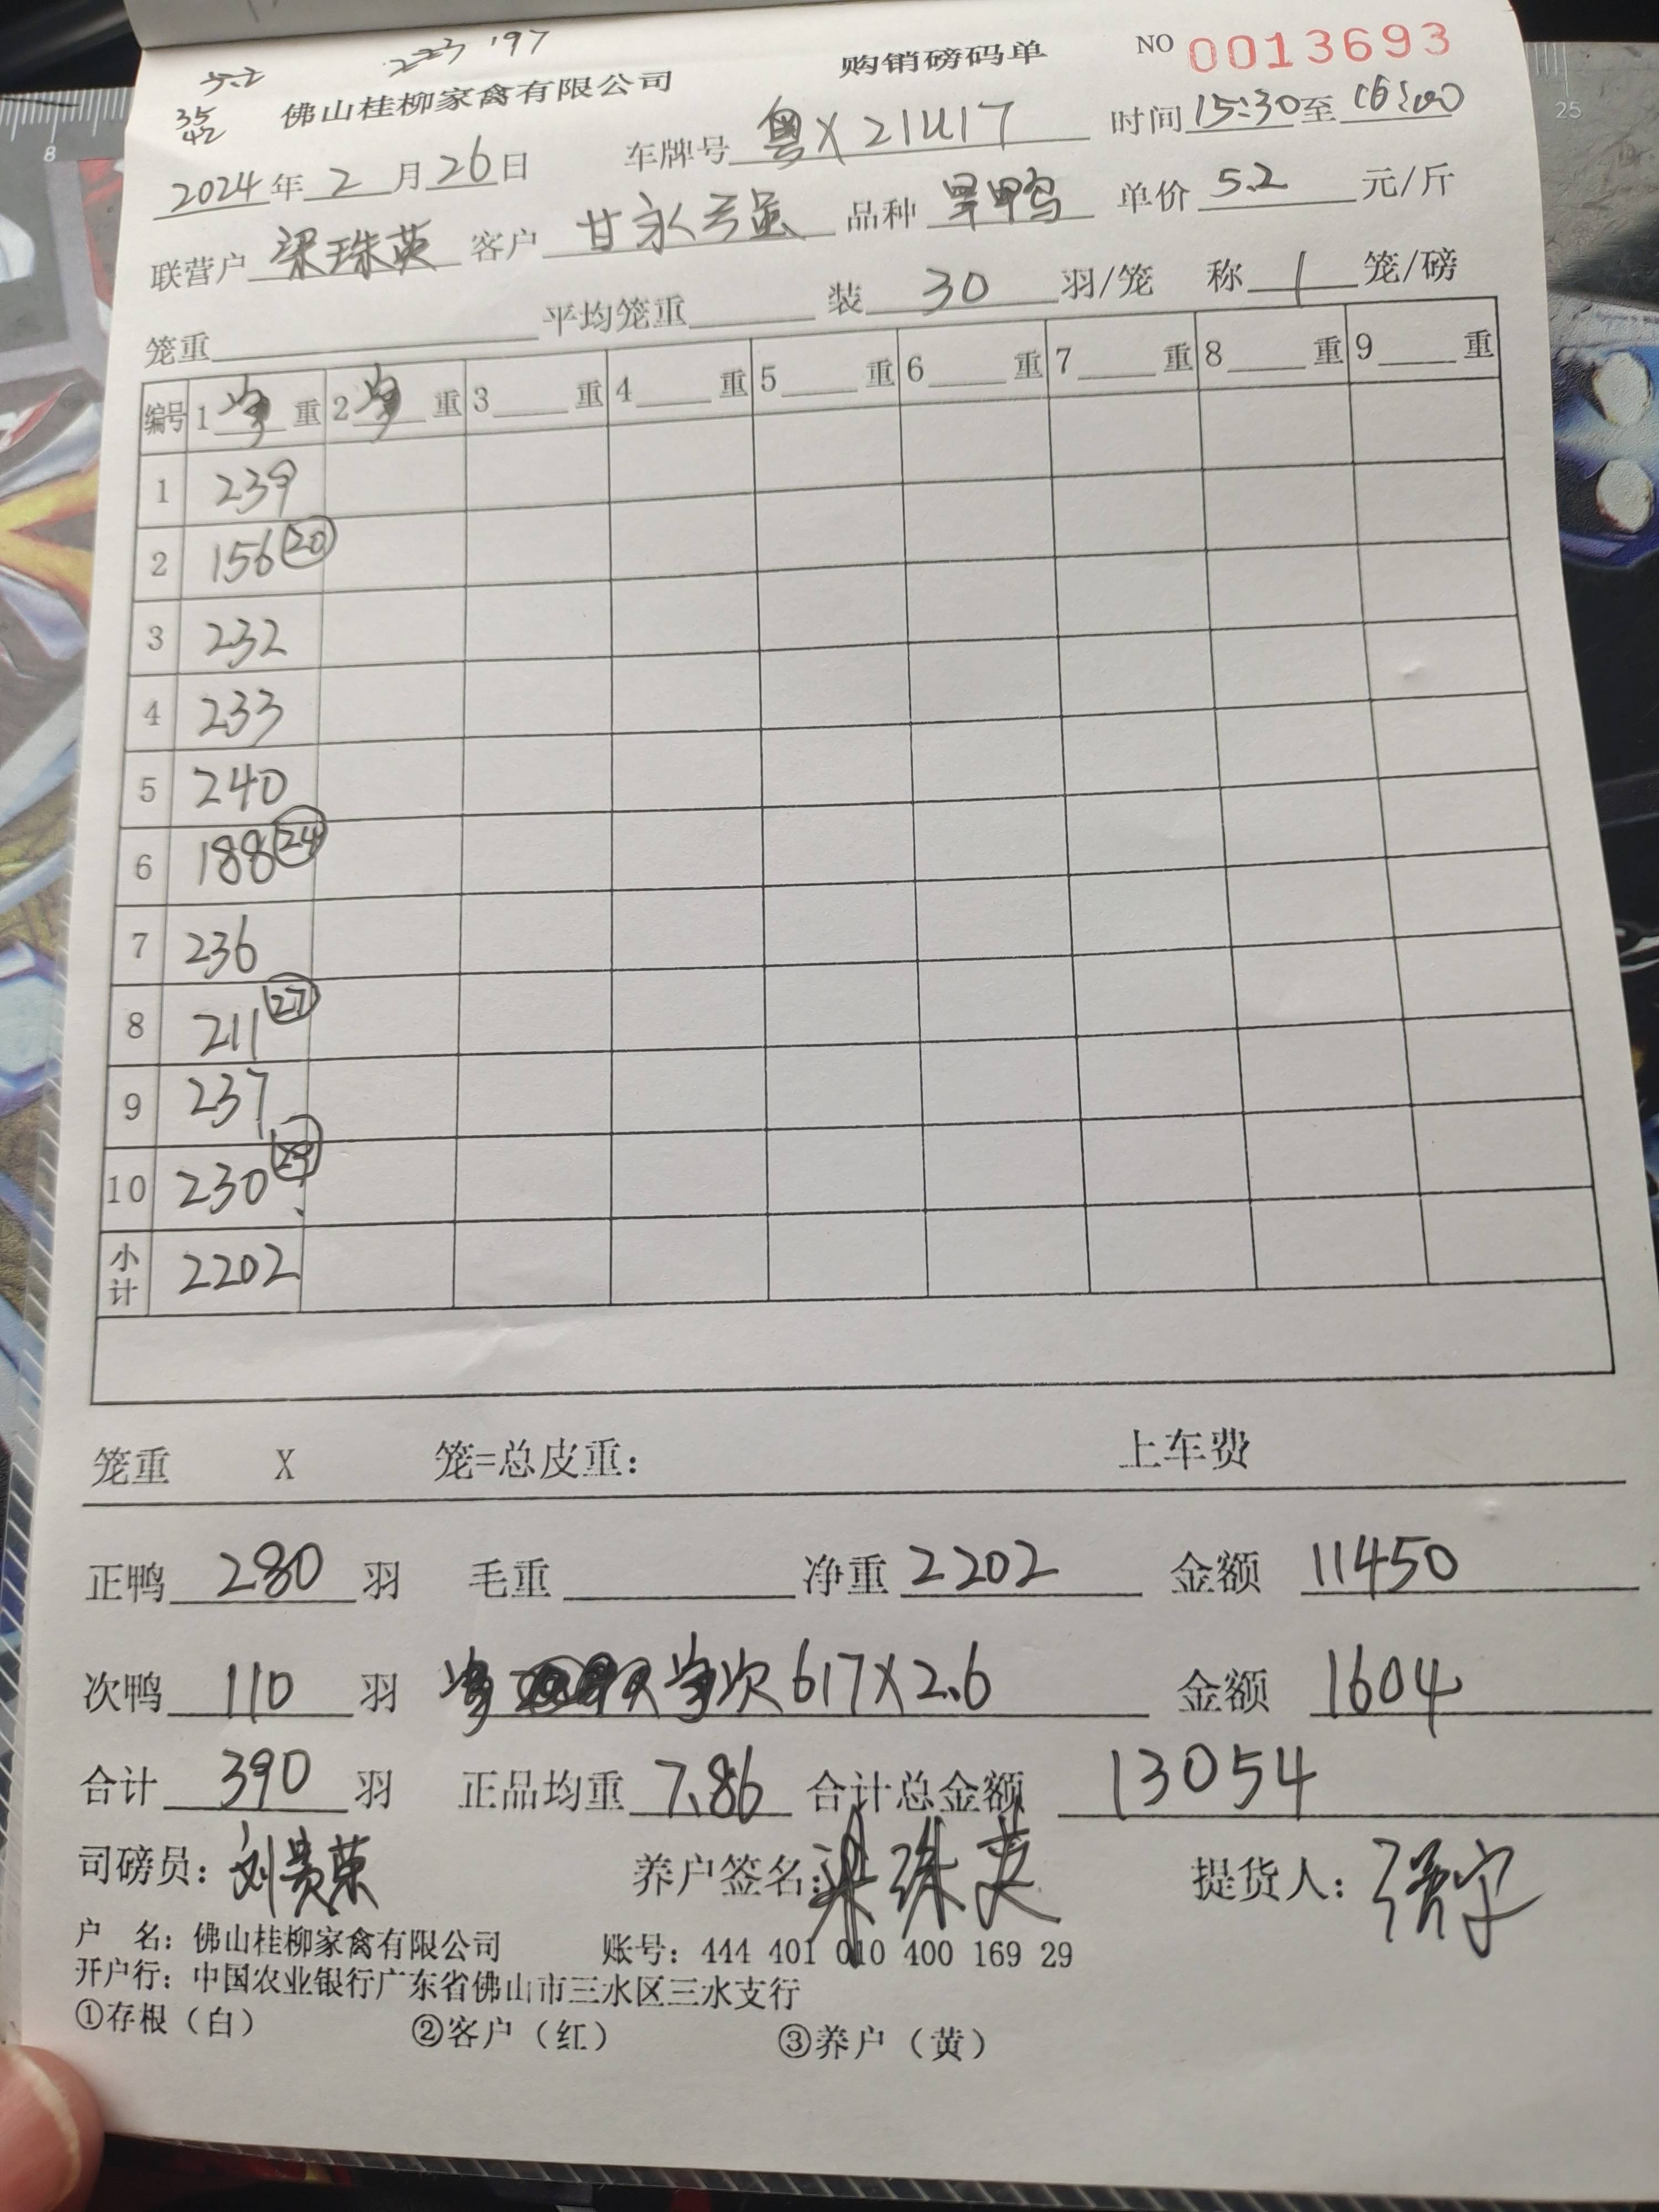 5.2 223 '97
35
42
佛山桂柳家禽有限公司 购销磅码单 NO 0013693
2024年 2 月 26 日 车牌号 粤X 21U17 时间 15:30 至 16:00
联营户 梁珠英 客户 甘永强 品种 旱鸭 单价 5.2 元/斤
笼重 平均笼重 装 30 羽/笼 称 1 笼/磅
编号 1 净 重 2 净 重 3 重 4 重 5 重 6 重 7 重 8 重 9 重
1 239
2 156 20
3 232
4 233
5 240
6 188 24
7 236
8 211 27
9 237
10 230 29
小计 2202
笼重 X 笼=总皮重: 上车费
正鸭 280 羽 毛重 净重 2202 金额 11450
次鸭 110 羽 次 617X2.6 金额 1604
合计 390 羽 正品均重 7.86 合计总金额 13054
司磅员: 刘贵荣 养户签名: 梁珠英 提货人:
户 名: 佛山桂柳家禽有限公司 账号: 444 401 010 400 169 29
开户行: 中国农业银行广东省佛山市三水区三水支行
①存根（白） ②客户（红） ③养户（黄）